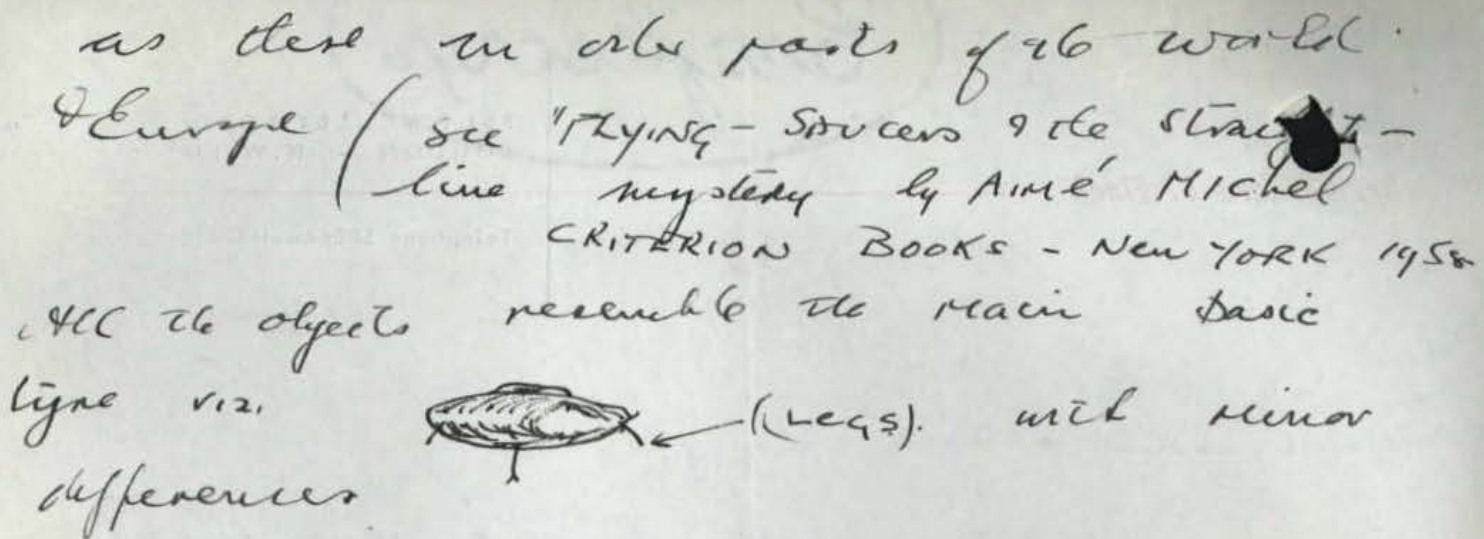 as these in other parts of the world.
& Europe (see "FLYING - SAUCERS & the straight -
line mystery by AIMÉ MICHEL
CRITERION BOOKS - NEW YORK 1958
All the objects resemble the main basic
type viz. (LEGS). with minor
differences